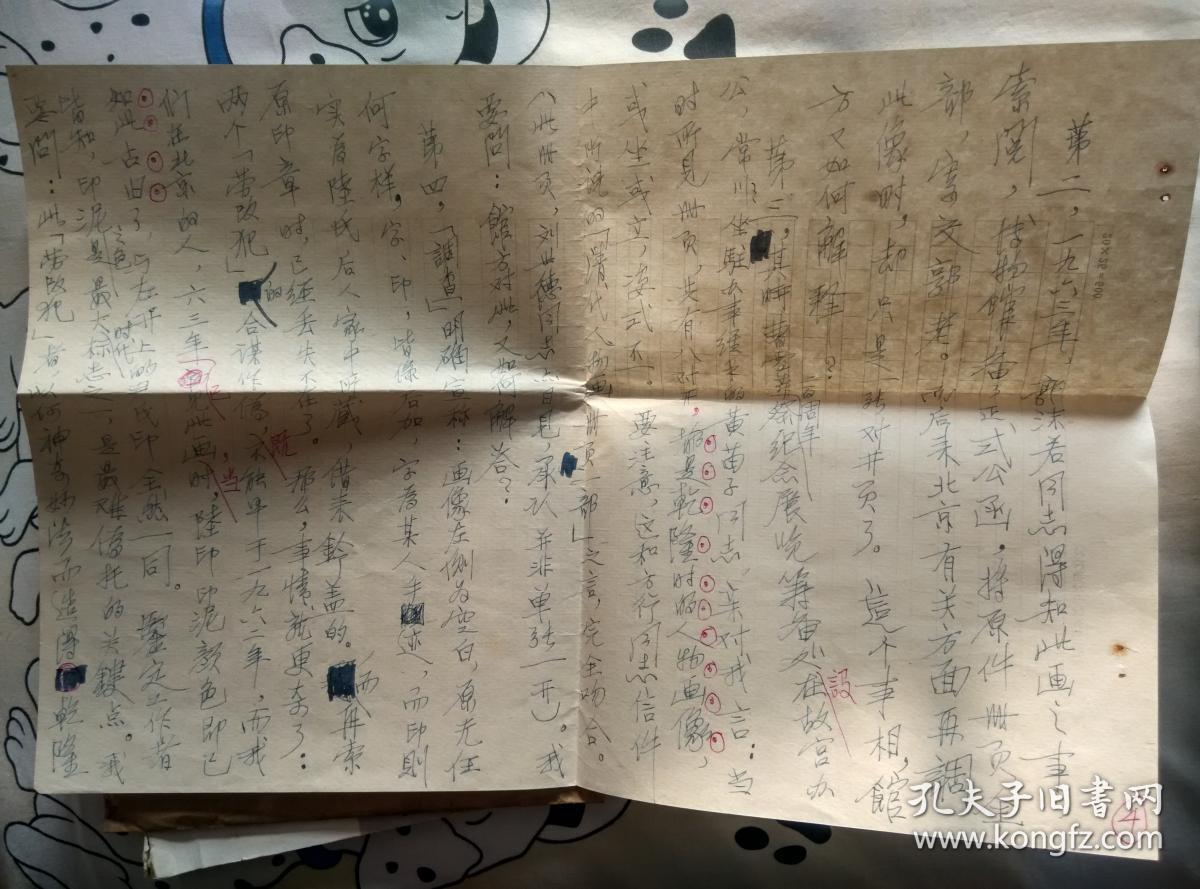 第二，一九六三年，郭沫若同志得知此画之事
索阅，博物馆备正式公函，将原件册页
部，寄交郭老。而后来北京有关方面再調
此像时，却只是一张对开页了。這个事相，館
方又如何解釋？
第三，其时曹雪芹紀念展览筹备处設在故宫办
二百周年
公，常川坐駐 的黄苗子同志亲对我言：当
时所见册页，共有八对开，皆是乾隆时的人物画像，
或坐或立，姿式不一。要注意，这和方行同志信件
中所说的「清代人物画册页一部」之言，完全吻合。
（此册页，刘 同志亦自己承认并非单张一开）。我
要問：館方对此，又如何解答？
第四，「調查」明确宣称：画像左侧为空白，原无任
何字样，字、印，皆係后加，字為某人手迹，而印則
实為陸氏后人家中所藏，借来鈐盖的。而再索
原印章时，已經丢失不在了。那么，事情就更奇了：
既
两个「带改犯」的合谋作偽，不能早于一九六二年，而我
们在北京的人，六三年已见此画时，陸印印泥颜色即已
当
如此占旧了，与左开上的 氏印全然一同。鑒定工作者
之色
皆知，印泥是最大标志之一，是最难偽托的关鍵点。我
时代
要問：此「带改犯」者，以何神奇妙法而造得乾隆
4
孔夫子旧書网
www.kongfz.com